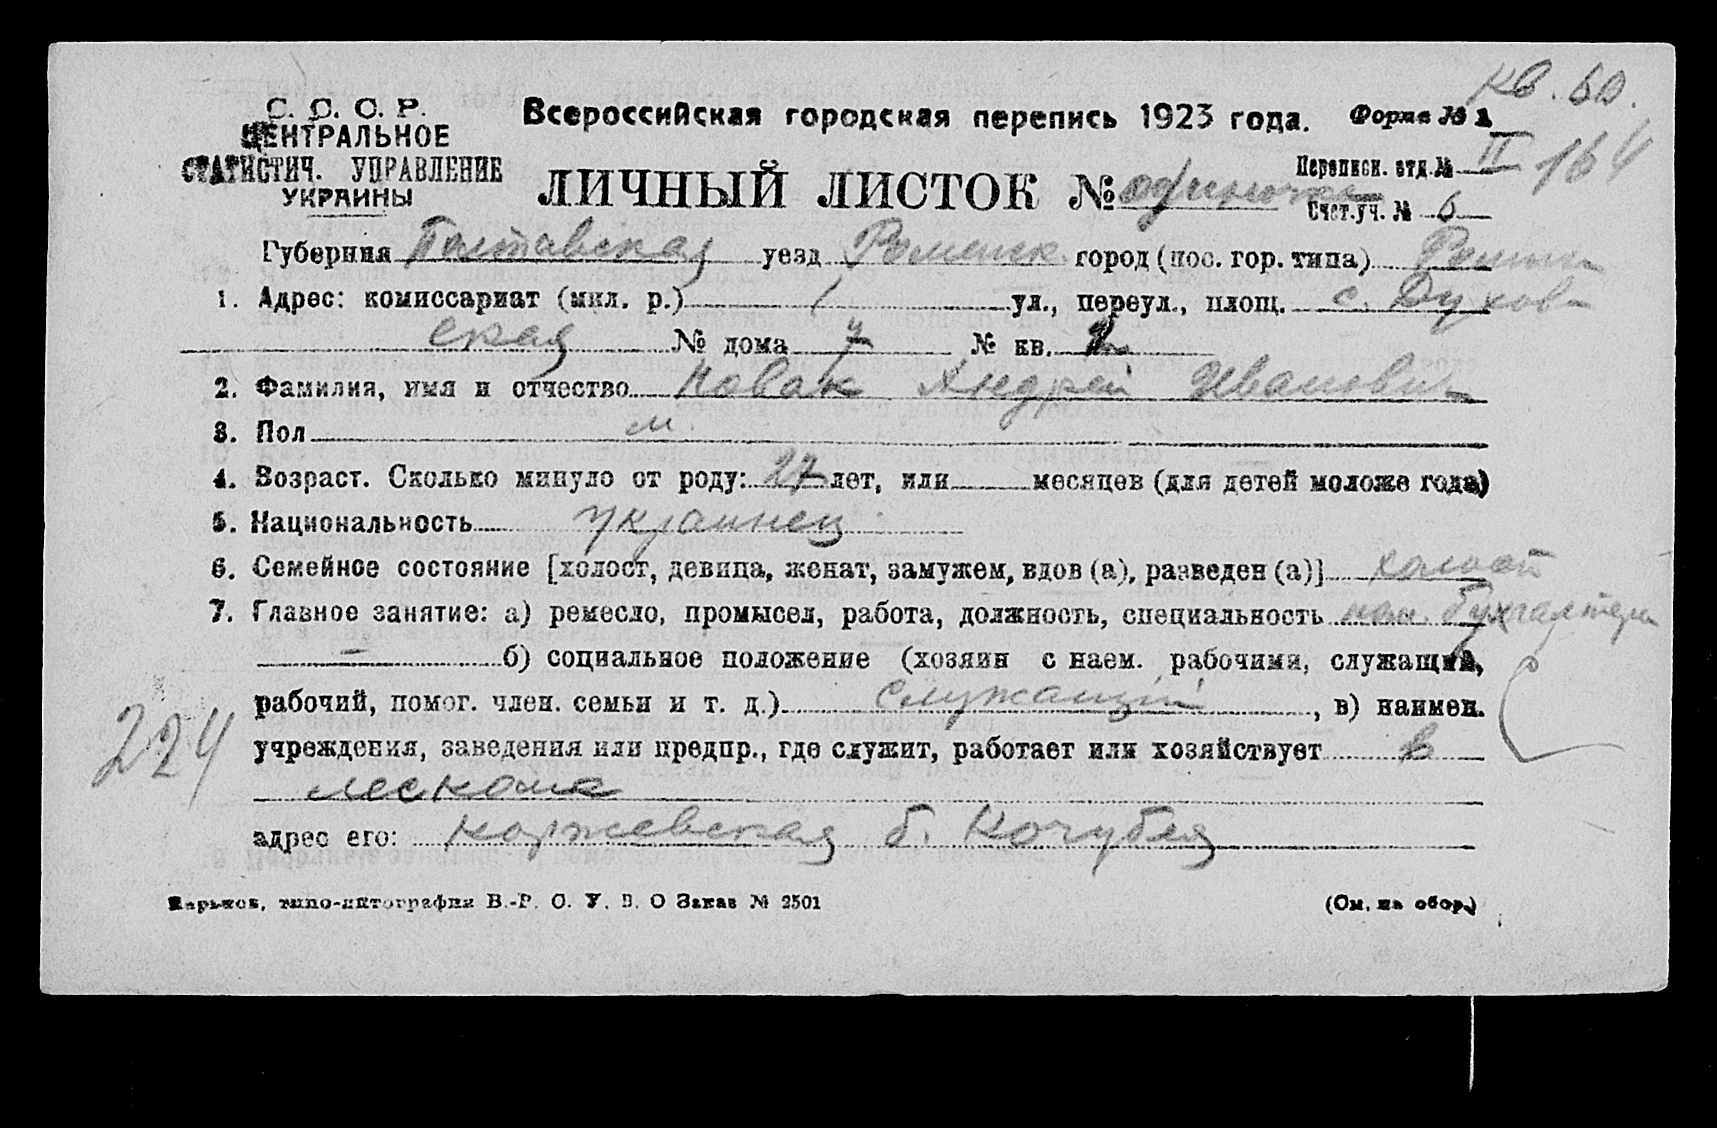 кв. 60.
С. С. С. Р.
ЦЕНТРАЛЬНОЕ
СТАТИСТИЧ. УПРАВЛЕНИЕ
УКРАИНЫ
Всероссийская городская перепись 1923 года. Форма № 1
Переписн. отд. № II 164
ЛИЧНЫЙ ЛИСТОК № одиночки
Счет. уч. № 6
Губерния Полтавская уезд Роменск. город (пос. гор. типа) Ромны
1. Адрес: комиссариат (мил. р.) 1 ул., переул., площ. с. Духов-
ская № дома 7 № кв. 2
2. Фамилия, имя и отчество Новак Андрей Иванович
3. Пол м.
4. Возраст. Сколько минуло от роду: 27 лет, или месяцев (для детей моложе года)
5. Национальность украинец
6. Семейное состояние [холост, девица, женат, замужем, вдов (а), разведен (а)] холост
7. Главное занятие: а) ремесло, промысел, работа, должность, специальность пом. бухгалтера
— б) социальное положение (хозяин с наем. рабочими, служащий,
рабочий, помог. член. семьи и т. д.) служащий, в) наимен.
224
учреждения, заведения или предпр., где служит, работает или хозяйствует в
лескоме
адрес его: Коржевская б. Кочубея
Харьков, типо-литография В.-Р. С. У. В. О Заказ № 2501 (См. на обор.)